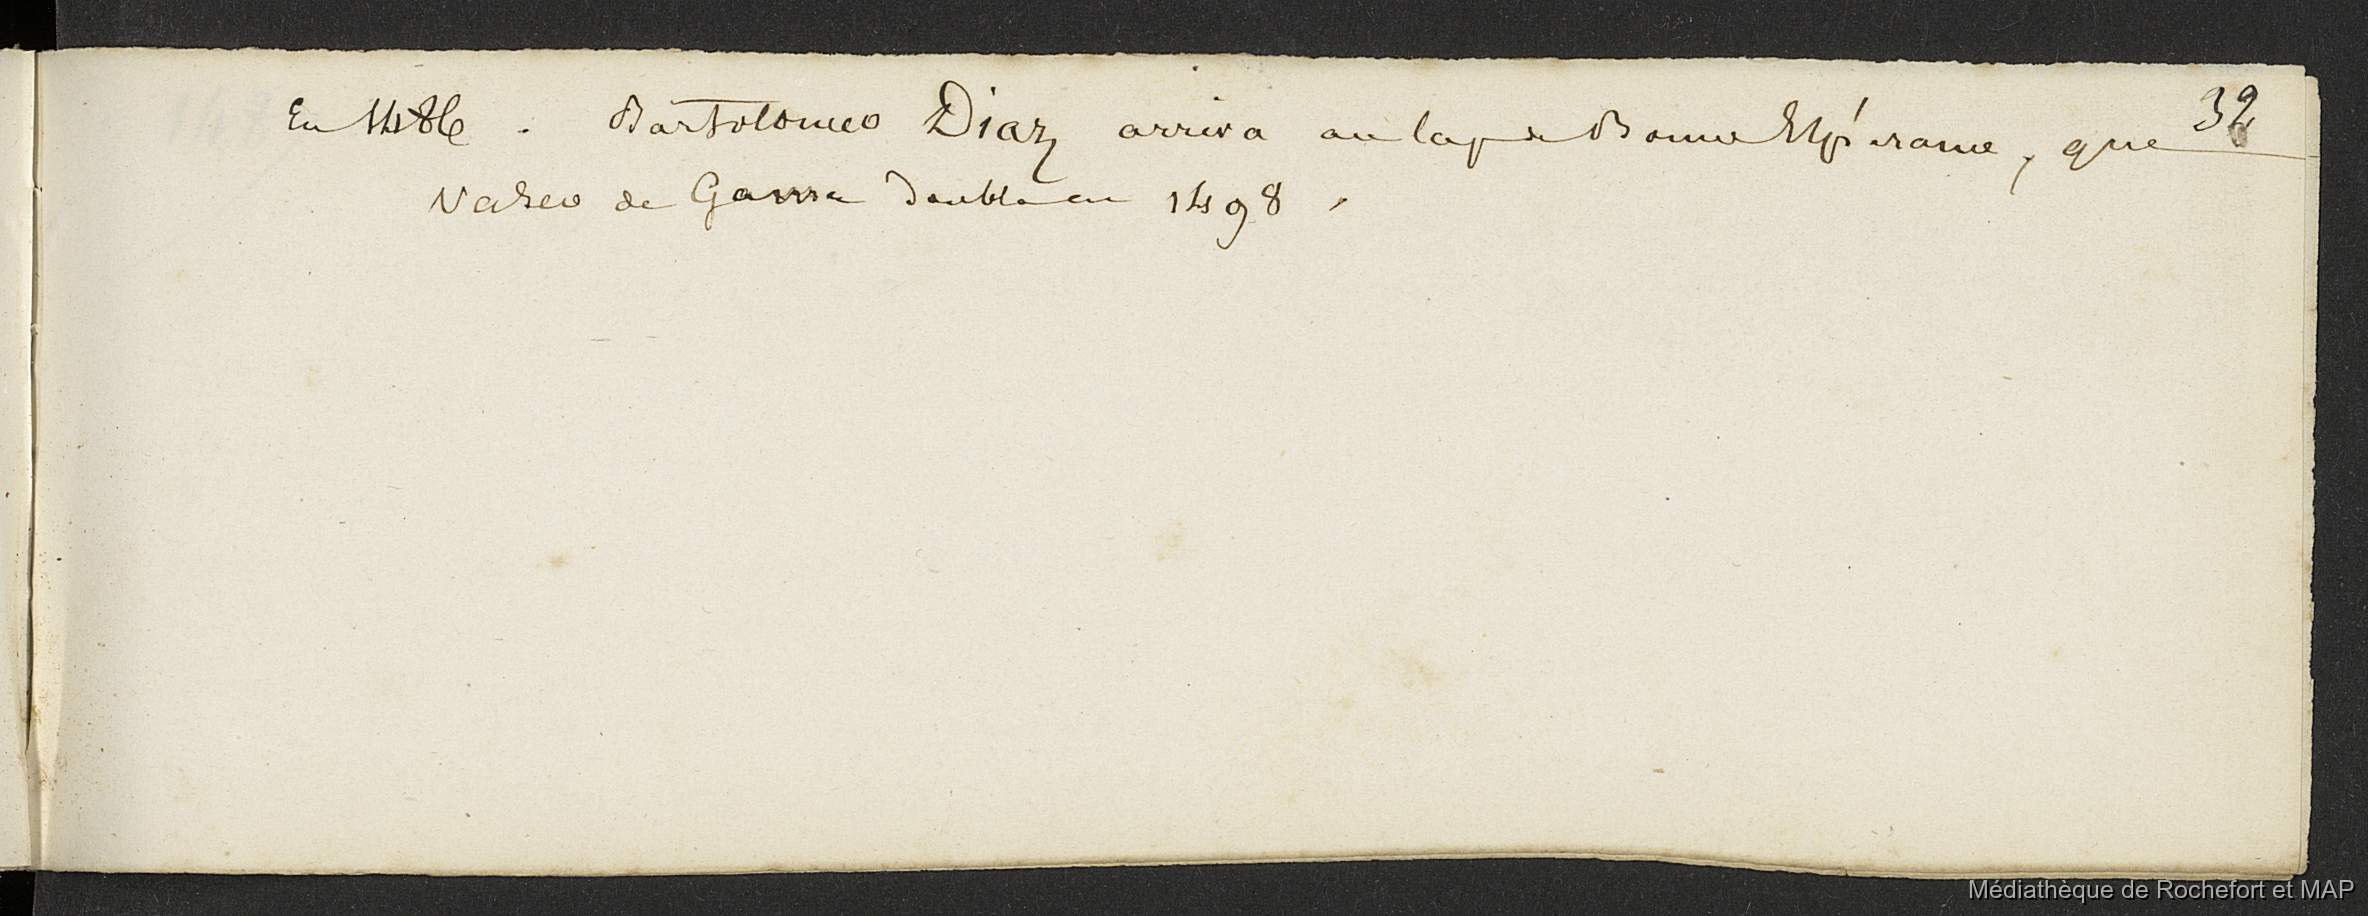 32
En 1486. Bartolomeo Diaz arriva au Cap de Bonne Espérance, que
Vasco de Gama doubla en 1498.
Médiathèque de Rochefort et MAP